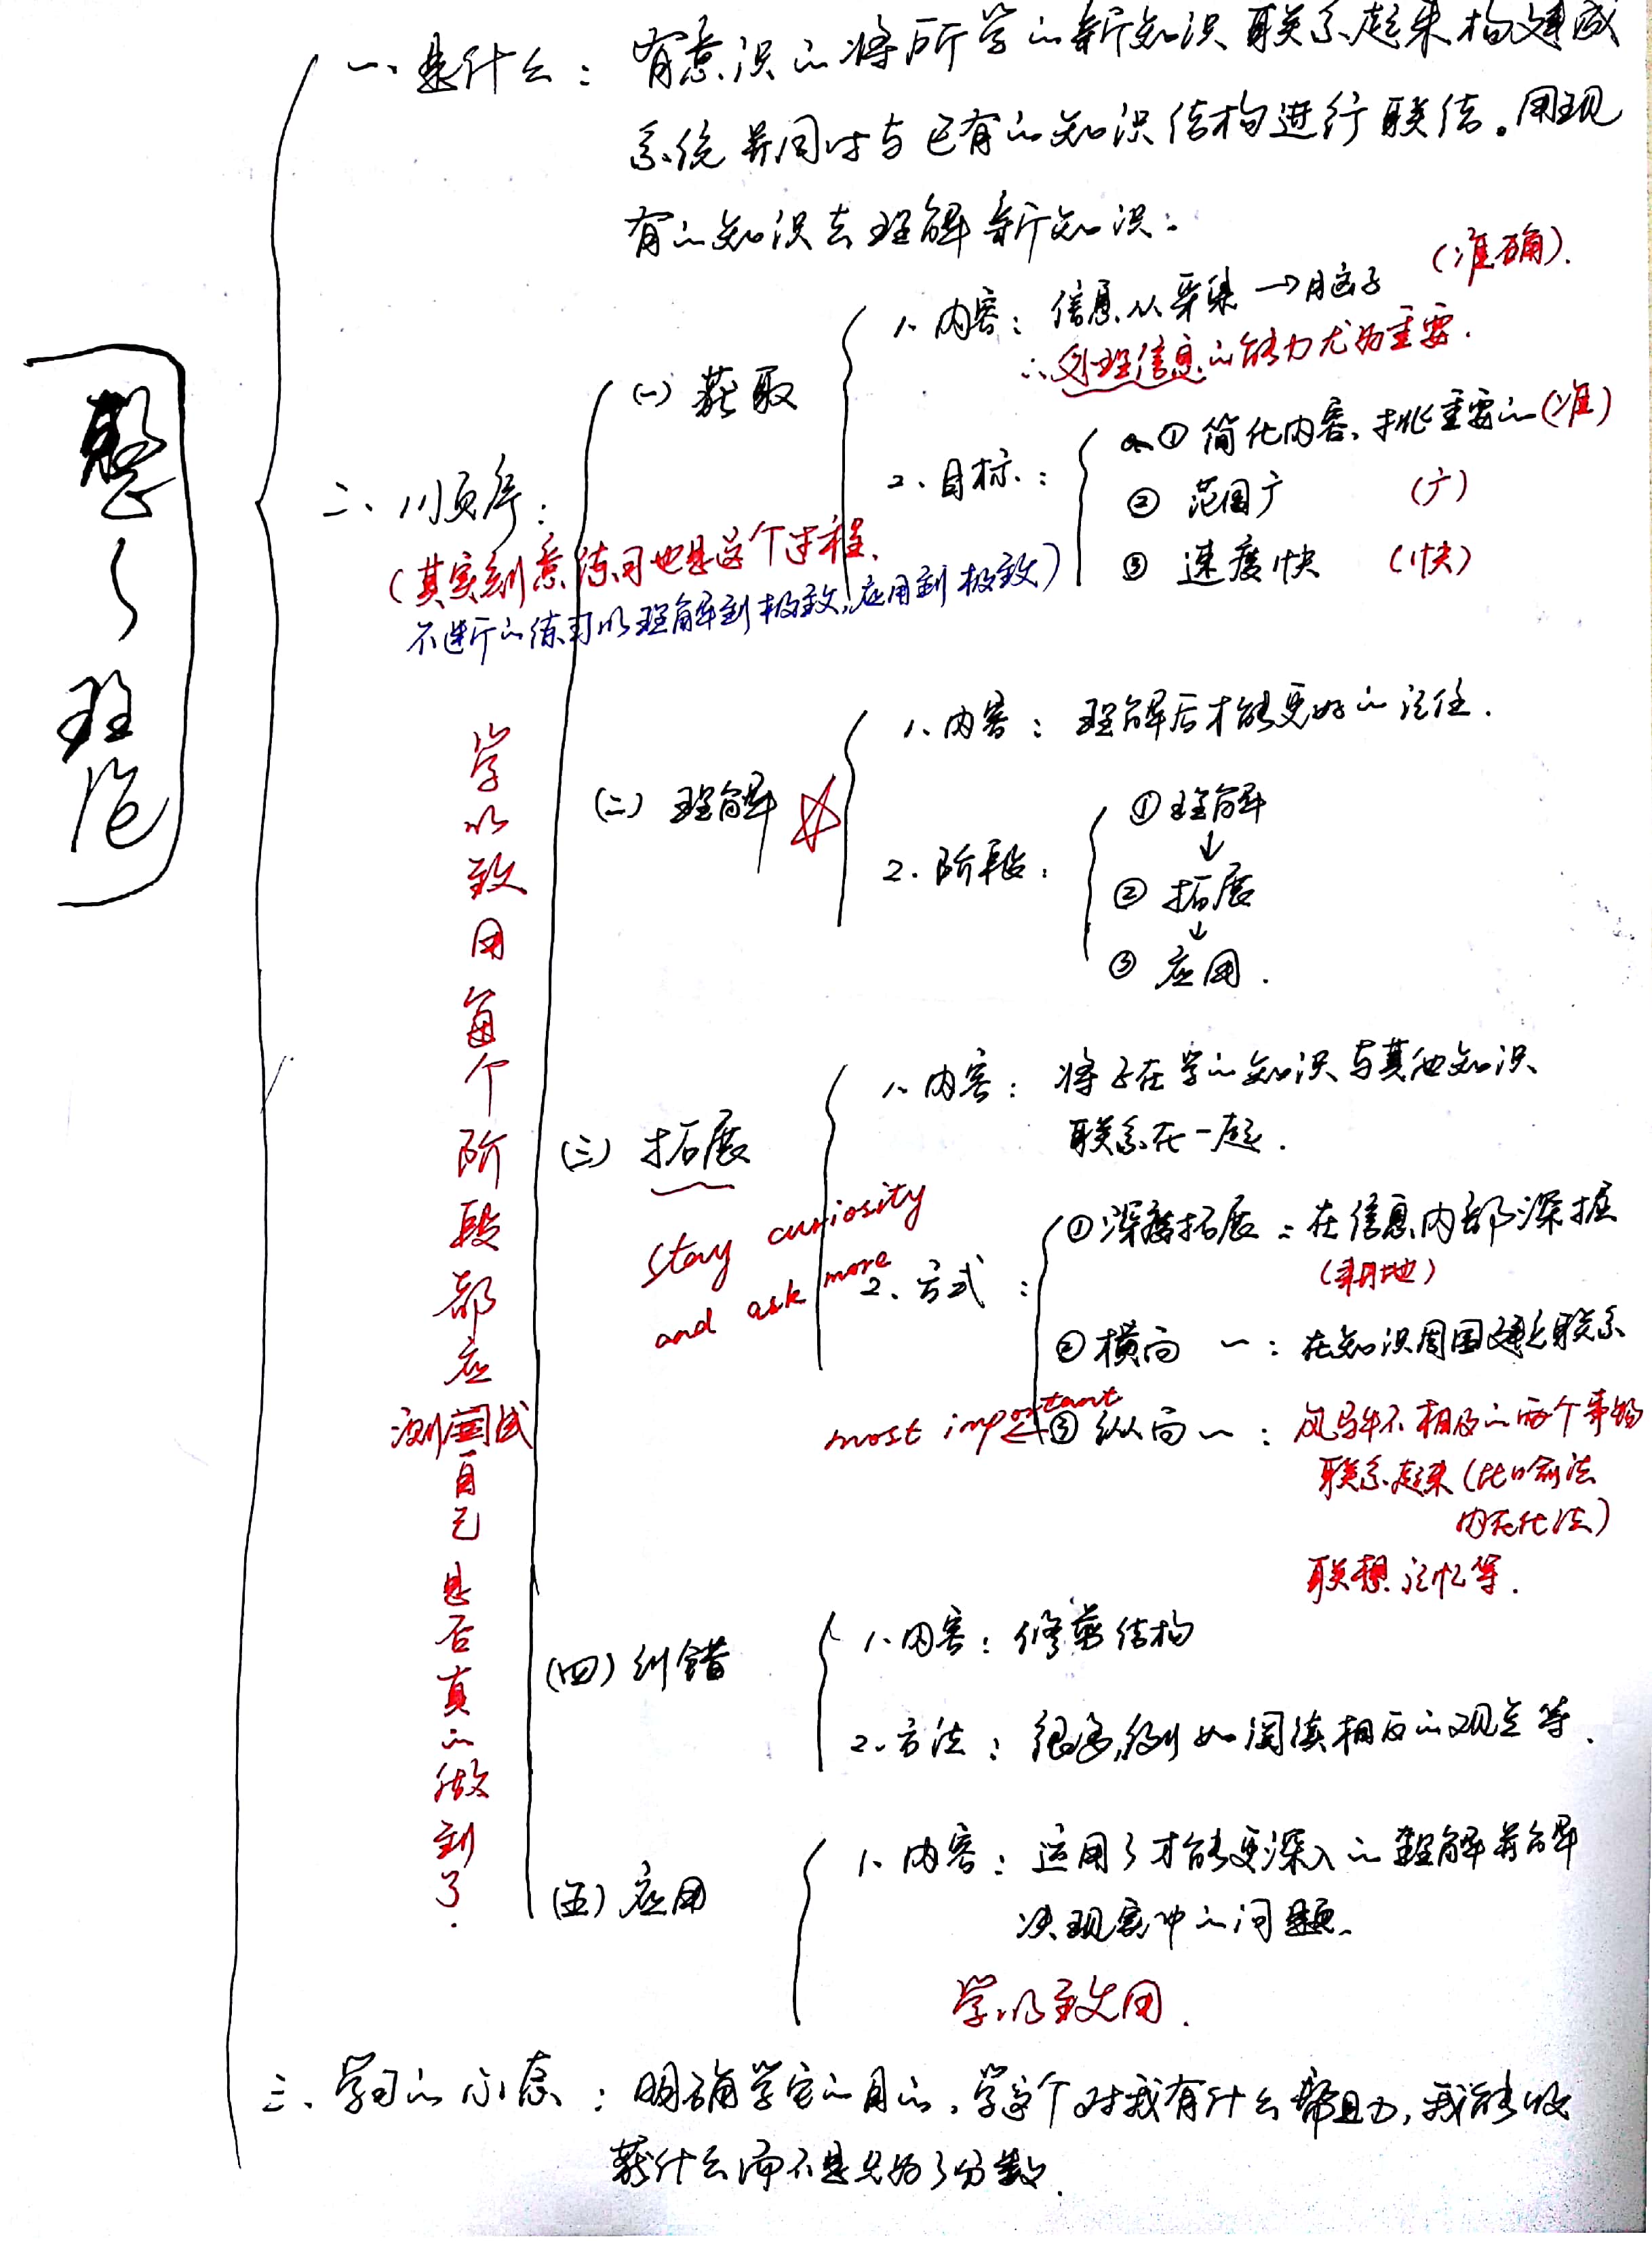 整
理
一、是什么：有意识的将所学的新知识联系起来构建成
系统并同时与已有的知识结构进行联结。用现
有的知识去理解新知识：
二、顺序：
(其实刻意练习也是这个过程.
不断的练习以理解到极致,应用到极致)
学以致用每个阶段都应测试自己是否真的做到了.
(一) 获取
1、内容：信息从采集→脑子 (准确).
∴处理信息的能力尤为重要.
2、目标：
① 简化内容、挑重要的 (准)
② 范围广 (广)
③ 速度快 (快)
(二) 理解
1、内容：理解后才能更好的记住.
2、阶段：
①理解
↓
② 拓展
↓
③ 应用.
(三) 拓展
stay curiosity
and ask more
1、内容：将正在学的知识与其他知识
联系在一起.
2、方式：
①深度拓展：在信息内部深挖
(耕地)
②横向 ～：在知识周围建立联系
most important
③纵向～：风马牛不相及的两个事物
联系起来(比喻法
内在化法)
联想记忆等.
(四) 纠错
1、内容：修剪结构
2、方法：很多,例如阅读相反的观点等.
(五) 应用
1、内容：运用了才能更深入的理解并解
决现实中的问题.
学以致用.
三、学习的心态：明确学它的目的,学这个对我有什么帮助,我能收
获什么而不是只为了分数.